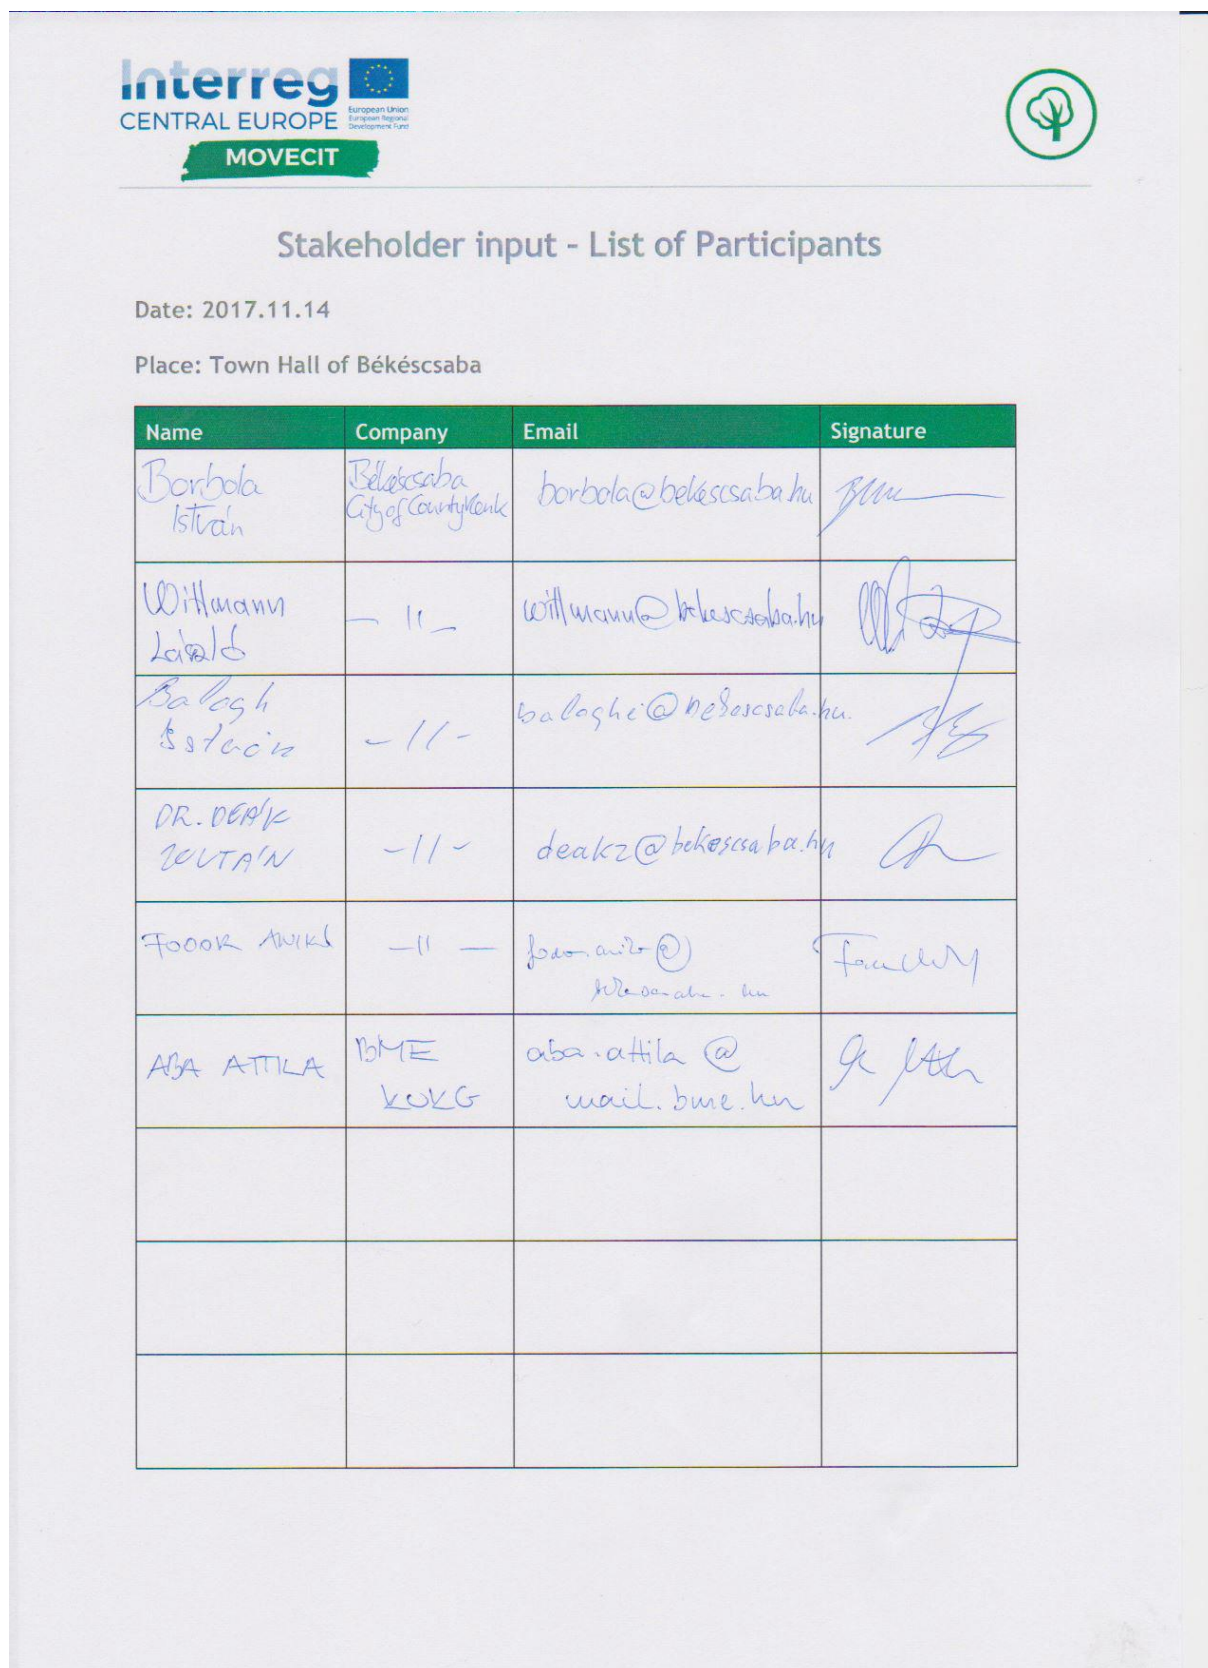 Interreg
CENTRAL EUROPE
European Union
European Regional
Development Fund
MOVECIT
Stakeholder input - List of Participants
Date: 2017.11.14
Place: Town Hall of Békéscsaba
Name Company Email Signature
Borbola
István
Békéscsaba
City of County Rank
borbola@bekescsaba.hu
Wittmann
László
- 11 -
wittmann@bekescsaba.hu
Balogh
István
- 11 -
baloghi@bekescsaba.hu.
DR. DEÁK
ZOLTÁN
- 11 -
deakz@bekescsaba.hu
FODOR ANIKÓ
- 11 -
ABA ATTILA
BME
KUKG
aba.attila@
mail.bme.hu